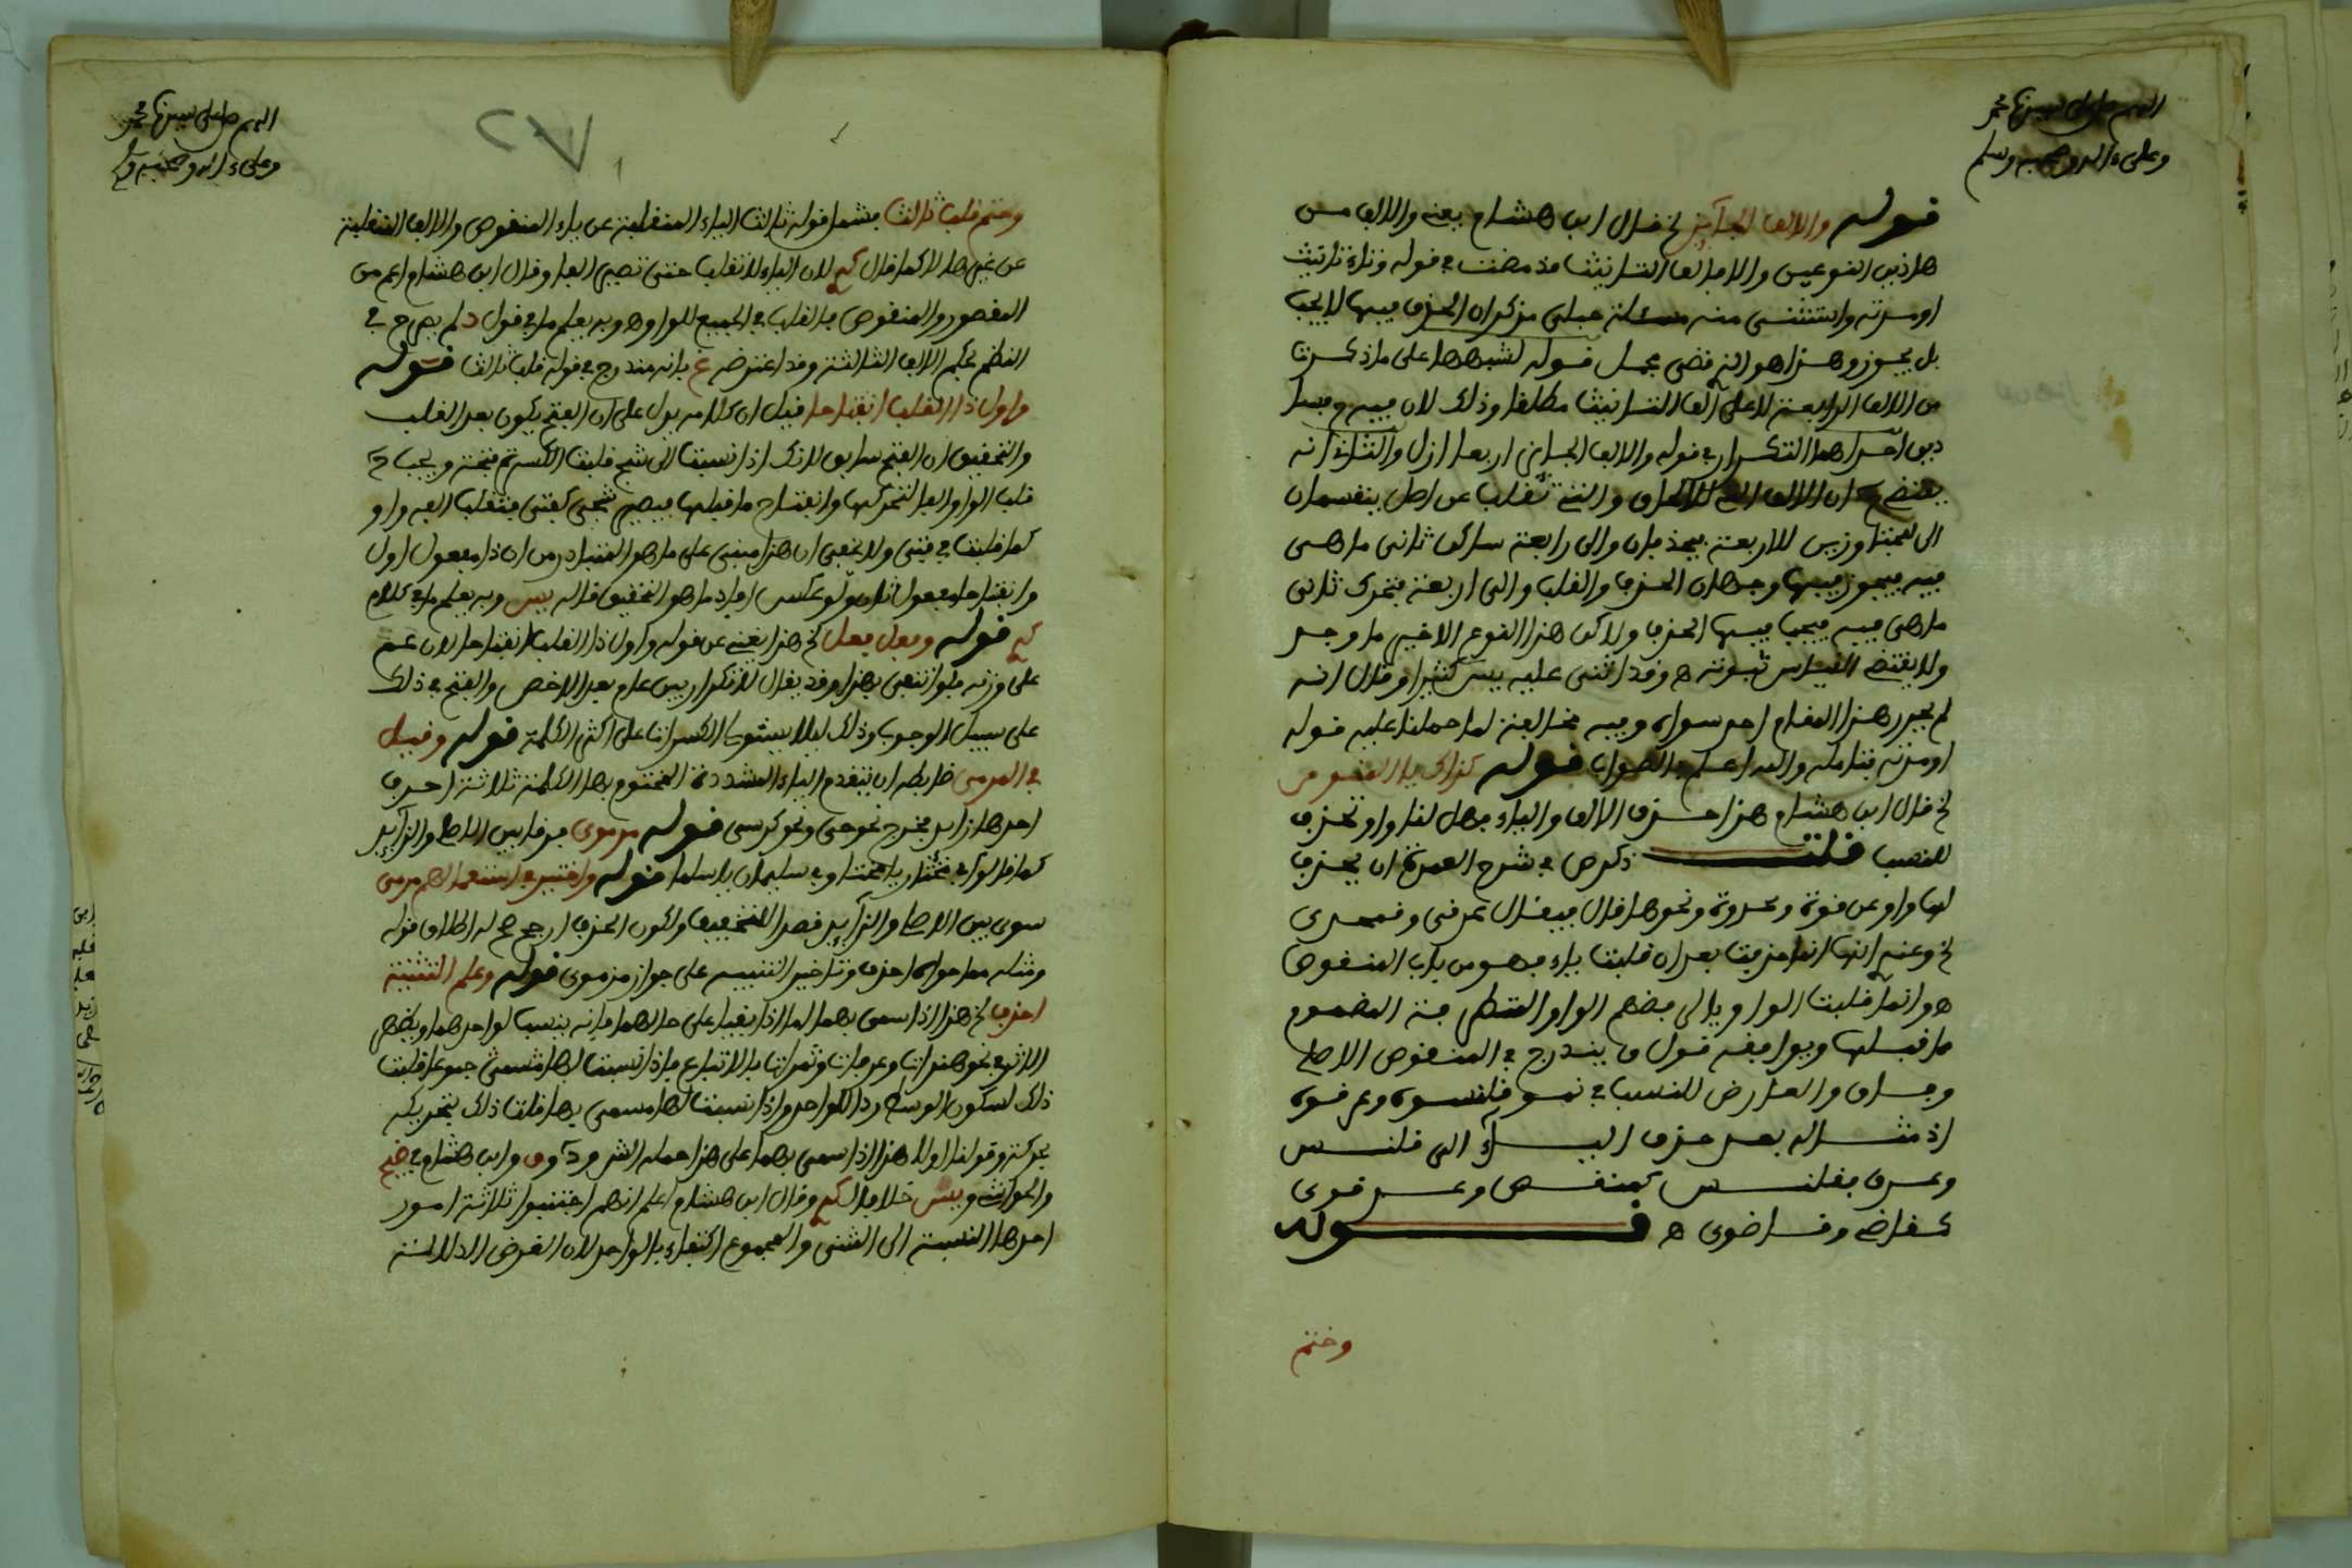 اللهم صل على سيدنا محمد
وعلى ءاله وصحبه وسلم
قوله والالف الجائز الخ قال ابن هشام يعني والالف من
هاذين النوعين والا فالف التانيث قد مضت في قوله وتاء تانيث
او مدته واستثنى منه مسئلة حبلى فذكر ان الحذف فيها لا يجب
بل يجوز وهذا هو الذي قضى بحمل قوله لشبهها على ما ذكرت
من الالف الرابعة لا على الف التانيث مطلقا وذلك لان فيه فسا
دين احدهما التكرار في قوله والالف الجائز اربعا ازل والثاني انه
يقتضي ان الالف التي للالحاق والتي تقلب عن اصل ينقسمان
الى متجاوزين للاربعة فيحذفان والى رابعة ساكن ثاني ما هي
فيه فيجوز فيها وجهان الحذف والقلب والى اربعة متحرك ثاني
ما هي فيه فيجب فيها الحذف ولاكن هذا النوع الاخير ما وجد
ولا يقتضي القياس ثبوته ه وقد اثنى عليه يس كثيرا وقال انه
لم يحرر هذا المقام احد سواه وفيه مخالفة لما حملنا عليه قوله
او مدته فتامله والله اعلم بالصواب قوله كذاك يا المنقوص
الخ قال ابن هشام هذا حذف الالف والياء فهل لنا واو تحذف
للنسب قلت ذكر ص في شرح العمدة ان يحذف
لها واو عن قوة وعدوة ونحوها قال فيقال عرقي وقمحدي
الخ وعندي انها انما حذفت بعد ان قلبت ياء فهو من باب المنقوص
ه وانما قلبت الواو يا لرفضهم الواو المتطرفة المضموم
ما قبلها ويوافقه قول ق يندرج في المنقوص الاصلي
وجاق والعارض للنسب في نحو قلنسوة وعرقوة
اذ مثاله بعد حذف التاء الى قلنس
وعرق فقلنس كمنقص وعرقوى
كقاض وقاضوى ه قوله
وختم
اللهم صل على سيدنا محمد
وعلى ءاله وصحبه وسلم
٢٧
وحتم قلب ثالث يشمل قوله ثالث الياء المنقلبة عن ياء المنقوص والالف المنقلبة
عن غيرها لا كما قال لان الياء لا تقلب حتى تصير الفا وقال ابن هشام اعم من
المقصور والمنقوص فالقلب في الجميع للواو ه وبه يعلم ما في قول د لم يصرح في
النظم بحكم الالف الثالثة وقد اعترضه غ بانه مندرج في قوله قلب ثالث قوله
واول ذا القلب انفتاحا قيل ان كلامه يدل على ان الفتح يكون بعد القلب
والتحقيق ان الفتح سابق للذلك اذا نسبت الى شج قلبت الكسرة فتحة ويجب ح
قلب الواو الفا لتحركها وانفتاح ما قبلها فيصير شجى كفتى فتقلب الفه واو
كما قلبت في فتى ولا يخفى ان هذا مبني على ما هو المتبادر من ان ذا مفعول اول
وانفتاحا مفعول ثان ولو عكس افاد ما هو التحقيق قاله يس وبه يعلم ما في كلام
قوله وفعل وفعل الخ هذا يغني عن قوله واول ذا القلب انفتاحا لان عم
على وزنه فلو اكتفى بهذا وقد يقال لا تكرار بين عام بعد الاخص والفتح في ذلك
على سبيل الوجوب وذلك ليلا يستولى الكسرات على اكثر الكلمة قوله وقيل
في المرمى ضابطه ان تتقدم الياء المشددة المختوم بها الكلمة ثلاثة احرف
احدها زايد فخرج نحو حي ونحو كرسي قوله مرموى فرقا بين الاصلي والزايد
كما قالوا في مختار يا مختا وفي سليمان يا سلما قوله واختير في استعمالهم مرمى
سوى بين الاصلي والزايد قصدا للتخفيف ولكون الحذف ارجح له اطلاق قوله
ومثله مما حواه احذف وتاخير التنبيه على جواز مرموى قوله وعلم التثنية
احذف الخ هذا اذا سمي بهما اما اذا بقيا على حالهما فانه ينسب لواحدهما ويظهر
الاثر في نحو هندات وعرفات وثمرات بالاتباع فاذا نسبت لها مسمى جمعا قلت
ذلك لسكون الوسط ردا للواحد واذا نسبت لها مسمى بها قلت ذلك بتحريكه
بحركته وقولنا اولا هذا اذا سمي بهما على هذا حمله الش ود وق وابن هشام في ضيح
والحواشي ويس خلافا لـ وقال ابن هشام اعلم انهم اجتنبوا ثلاثة امور
احدها النسبة الى المثنى والمجموع اكتفاء بالواحد لان الغرض الدلالة